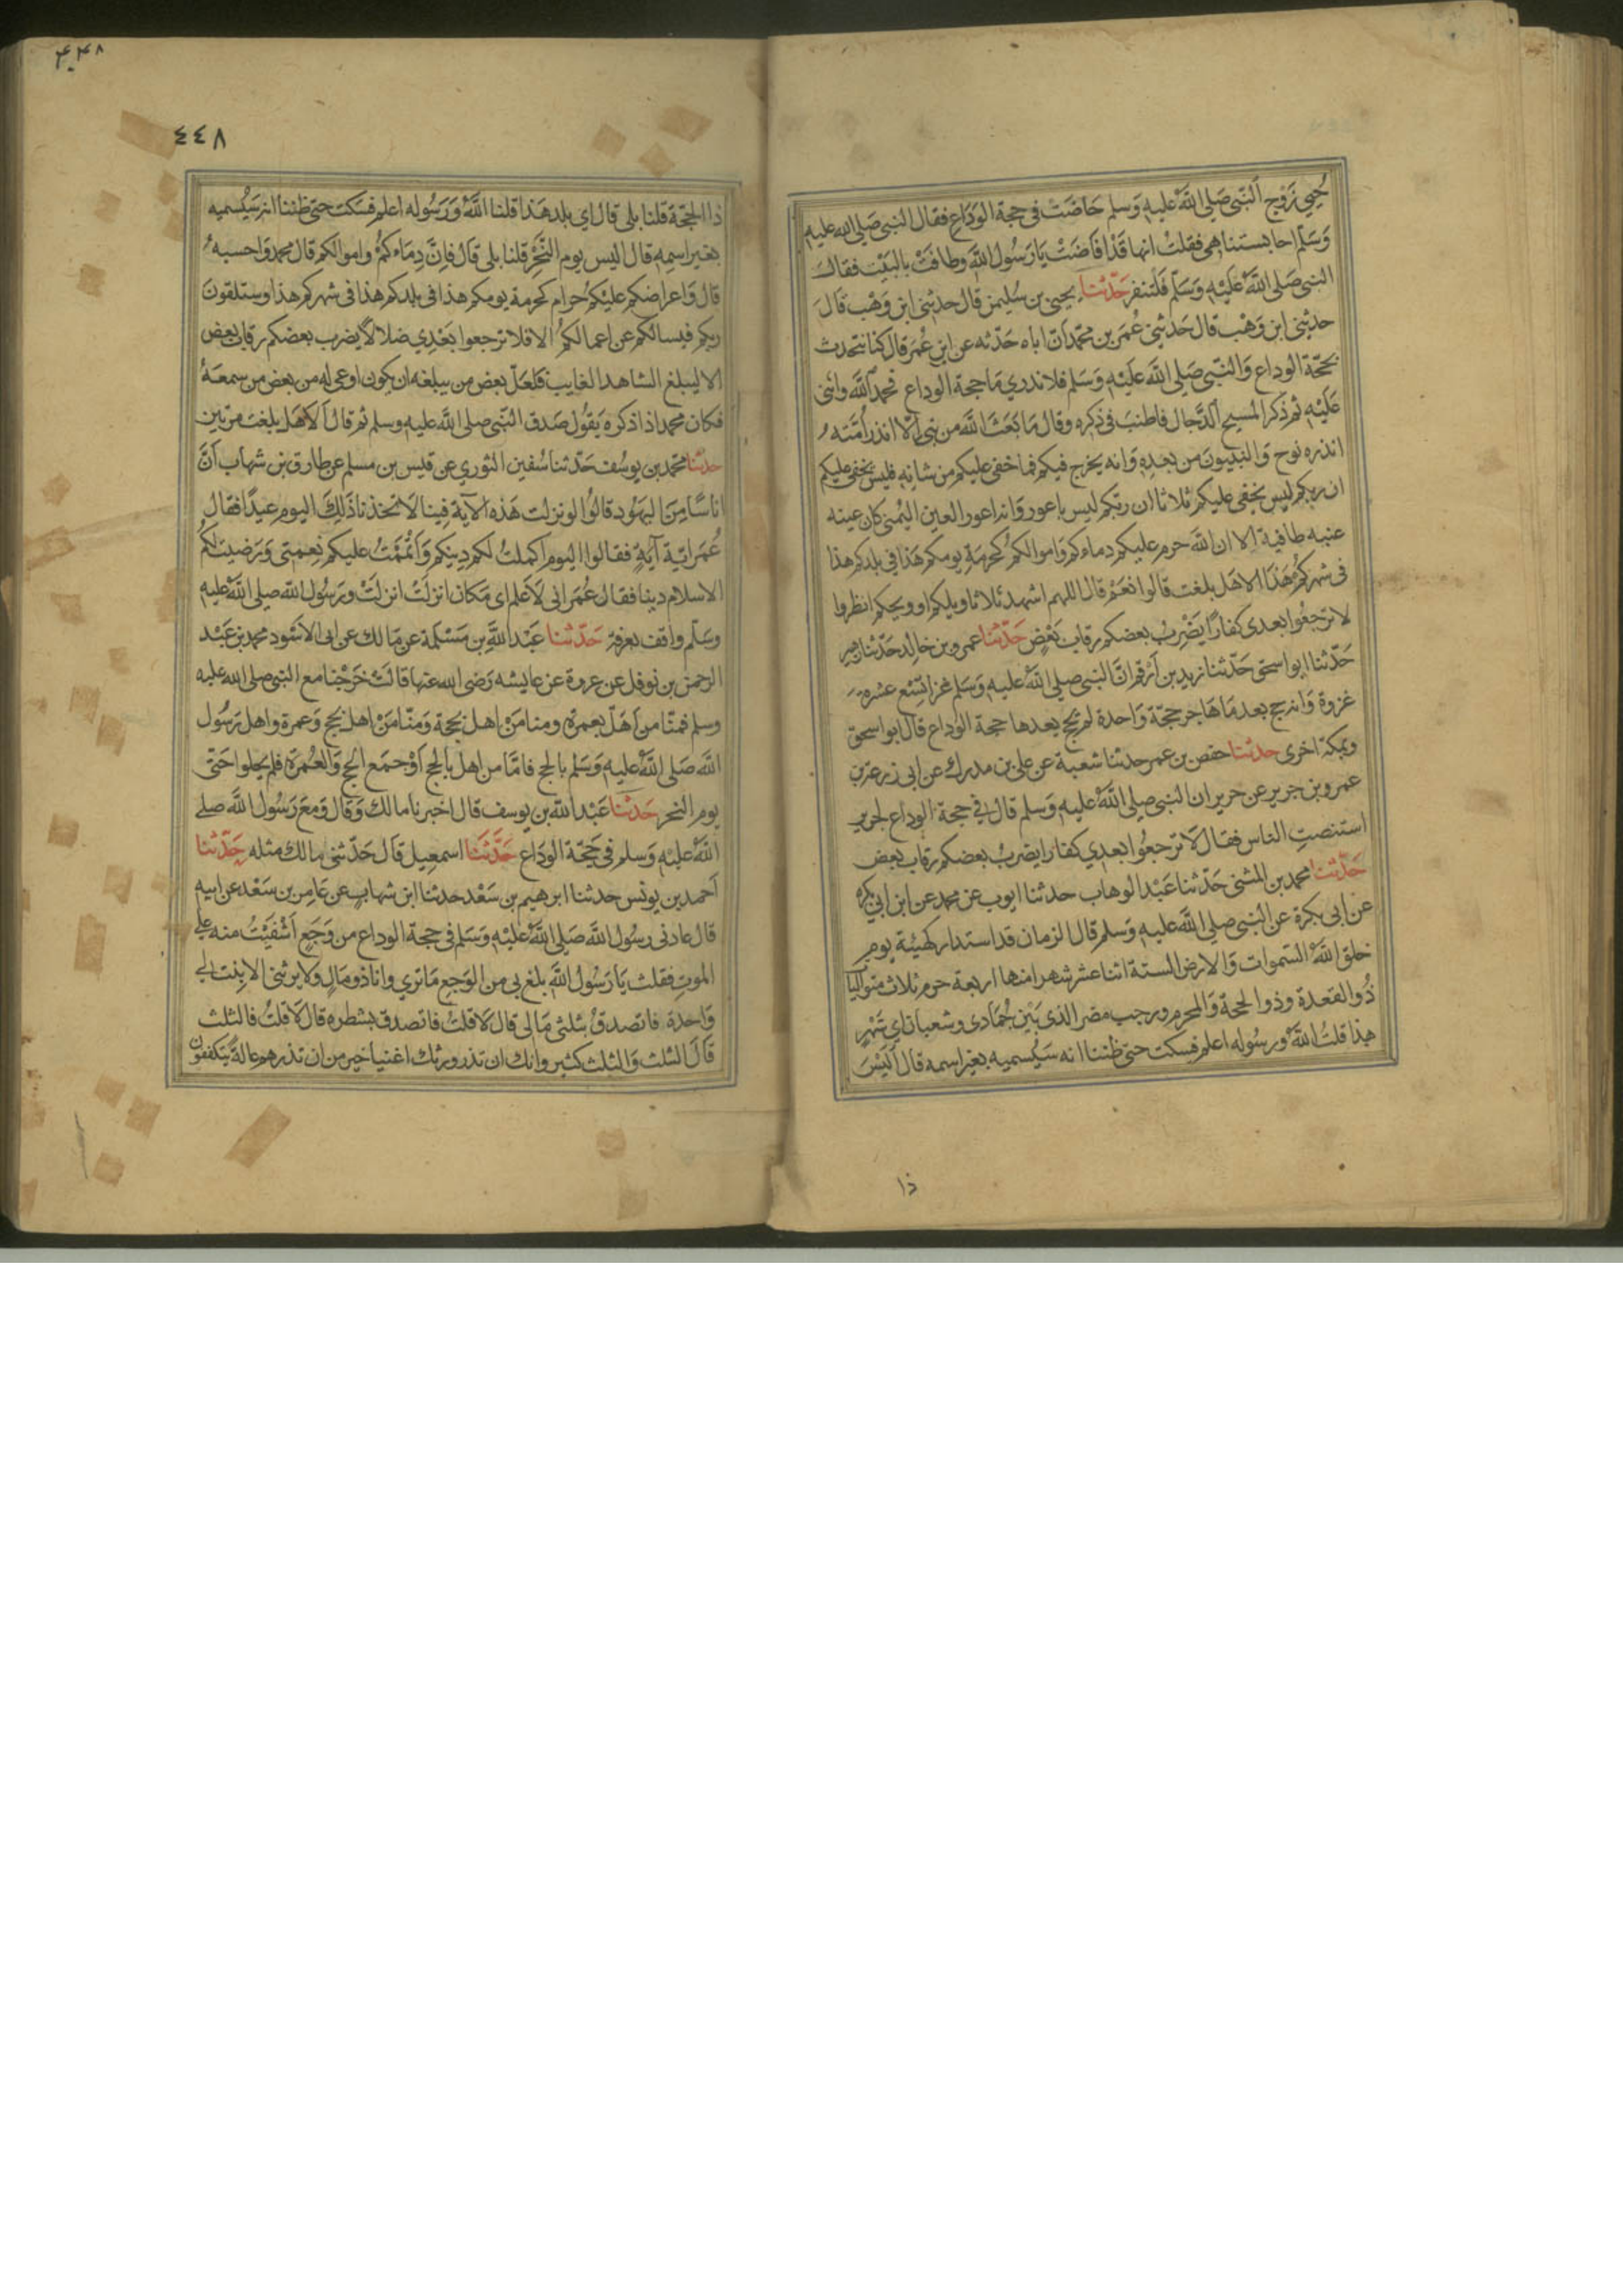 حُيَيّ زَوْج النّبّى صَلى اللهُ عَليهِ وَسلم حَاضَتْ فى حجة الوَدَاعِ فقال النبى صَلى الله عليهِ
وَسَلّم احابستنا هى فقلتُ انها قَدْ افَاضَتْ يَارَسُول اللهِ وطافَتْ بالبَيْت فقالَ
النبى صَلى اللهُ عَليْهِ وَسَلّم فَلْتنفر حَدّثنا يحيى بن سُليمن قال حدثنى ابن وَهْب قَالَ
حدثنى ابن وَهْب قال حَدثنى عُمَر بن محمّد انّ اباه حَدّثه عن ابن عُمَر قال كنا نتحدث
بحَجّة الوداع وَالنّبّى صَلى اللهُ عَليْهِ وَسَلم فلا ندري مَا حجة الوداع فحمد اللهَ واثنى
عَلَيْهِ ثم ذكر المسيح الدَّجال فاطنبَ فى ذكره وقال مَا بَعَثَ اللهَ من نبى الّا انذر امّته
انذره نوح وَالنبيونَ من بعدِهِ وَانه يخرج فيكم فما خفى عليكم من شانِهِ فليس يخفى عليكم
ان ربكم ليس يخفى عليكم ثلاثا ان ربّكم ليس باعور وَانه اعور العين اليُمنى كان عينه
عنبه طافية الا ان اللهَ حرم عليكم دماءكم وَاموالكُم كحُرمَةِ يومكم هَذا فى بلدكم هذا
فى شهركُم هَذا الا هَل بلغت قالوا نعَمْ قال اللهم اشهد ثلاثا ويلكم او ويحكم انظروا
لا ترجعُوا بعدى كفارًا يَضْرِبُ بعضكم رقاب بَعْضٍ حَدّثنا عمرو بن خالد حَدّثنا زهير
حَدّثنا ابو اسحق حَدّثنا زيد بن أرْقم انَّ النبى صلى اللهُ عَليهِ وَسَلم غزا تِسْع عشرة
غزوة وَانه حج بعد مَا هَاجر حجّة وَاحدة لم يحج بعدها حجة الوَداع قال ابو اسحق
وبمكة اخرى حدثنا حفص بن عمر حدثنا شعبة عن على بن مدرك عن ابى زرعة بن
عمرو بن جرير عن جرير ان النبى صلى اللهُ عليه وَسَلم قالَ فى حجة الوداع لجرير
استنصتِ الناس فقال لَا ترجعُوا بعدى كفارا يضربُ بعضكم رقاب بعض
حَدّثنا محمد بن المثنى حَدّثنا عَبْد الوهاب حدثنا ايوب عن محمد عن ابن ابى بكرة
عن ابى بكرة عن النبى صلى اللهُ عليه وَسلم قال الزمان قد استدار كهيئة يوم
خلق اللهُ السّموات وَالارض السنة اثنا عشر شهرا منها اربعة حرم ثلاث متواليا
ذُو القعدة وذو الحجة وَالمحرم ورجب مضر الذى بَيْنَ جُمَادى وشعبان اي شهْرٍ
هذا قلتُ اللهُ ورسُوله اعلم فسكت حتى ظننا انه سَيُسميه بغير اسمه قال اَلَيْسَ
ذا
۴۴۸
٤٤٨
ذا الحجّة قلنا بلى قال اي بلد هَذا قلنا اللهُ وَرَسُوله اعلم فسَكت حتى ظننا انه سَيُسميه
بغير اسمِهِ قال اليس يوم النَّحْرِ قلنا بلى قَالَ فاِنَّ دِمَاءكمُ واموالكم قال محمد وَاحسبهُ
قال وَاعراضكم عليْكم حرام كحرمة يومكم هذا فى بلدكم هذا فى شهركم هذا وستلقونَ
ربكم فيسالكم عن اعمالكُم الا فلا ترجعوا بَعْدِي ضلالًا يضرب بعضكم رقاب بعض
الا ليبلغ الشاهد الغايبَ فلعَلّ بعض من يبلغه ان يكون اوعى له من بعض من سمعَهُ
فكان محمد اذا ذكره يَقُول صَدق النّبّى صلى اللهُ عليه وسلم ثم قالَ الَا هَل بلغت مرّتين
حدثنا محمّد بن يوسُف حَدّثنا سُفين الثوري عن قليس بن مسلم عن طارق بن شهاب اَنَّ
اناسًا مِنَ اليهُود قالُوا لو نزلت هَذه الآية فِينا لَاتّخذنا ذَلِكَ اليوم عيدًا فقال
عُمَر ايّة آيَةٍ فقالوا اليوم اكملتُ لكم دِينكم وَاَتْمَمْتُ عليكم نِعمتى وَرَضيت لكُم
الاسلام دينا فقال عُمَر انى لَاَعلم اى مَكان انزلَتْ انزلتْ ورَسُول الله صلى اللهُ عَليهِ
وسَلّم واقف بعرفة حَدّثنا عَبْد اللهِ بن مَسْلَمة عن مَالك عن ابى الاَسْود محمد بن عَبْد
الرحمن بن نوفل عن عروة عن عايشه رَضى الله عنها قالَتْ خَرَجْنا مع النبى صلى الله عليه
وسلم فمنّا من اَهَلّ بعمرة ومنا مَنْ اهلّ بحجة وَمنّا مَنْ اهل بحج وَعمرة واهل رَسُول
اللهِ صَلى اللهُ عَليهِ وَسَلم بالحج فامّا من اهل بالحج اَوْ جمَع الحج وَالعُمرَة فلم يحلوا حَتّى
يوم النحر حَدثنا عَبْد اللهِ بن يوسف قال اخبرنا مالك وَقال وَمَعَ رَسُول اللهِ صلى
اللهُ عليْهِ وَسلم فى حَجّة الودَاع حَدّثنا اسمعِيل قَال حَدّثنى مالك مثله حَدّثنا
اَحمد بن يونس حدثنا ابرهيم بن سَعْد حدثنا ابن شهابٍ عن عَامِر بن سَعْد عن ابيه
قال عادنى رسُول اللهِ صَلى اللهُ عَليْهِ وَسَلم فى حجة الوداع من وَجَعٍ اَشْفَيْتُ منه على
الموتِ فقلت يَارَسُول اللهِ بلغ بى من الوَجع مَا ترى وانا ذو مَالٍ وَلا يرثنى الا بنت لى
وَاحدة فاتصدقُ بثلثى مَالى قال لَا قلتُ فاتصدق بشطره قال لَا قلتُ فالثلث
قَالَ الثلث وَالثلث كثير وانك ان تذر ورثتك اغنيا خير من ان تذرهم عالةً يتكففون